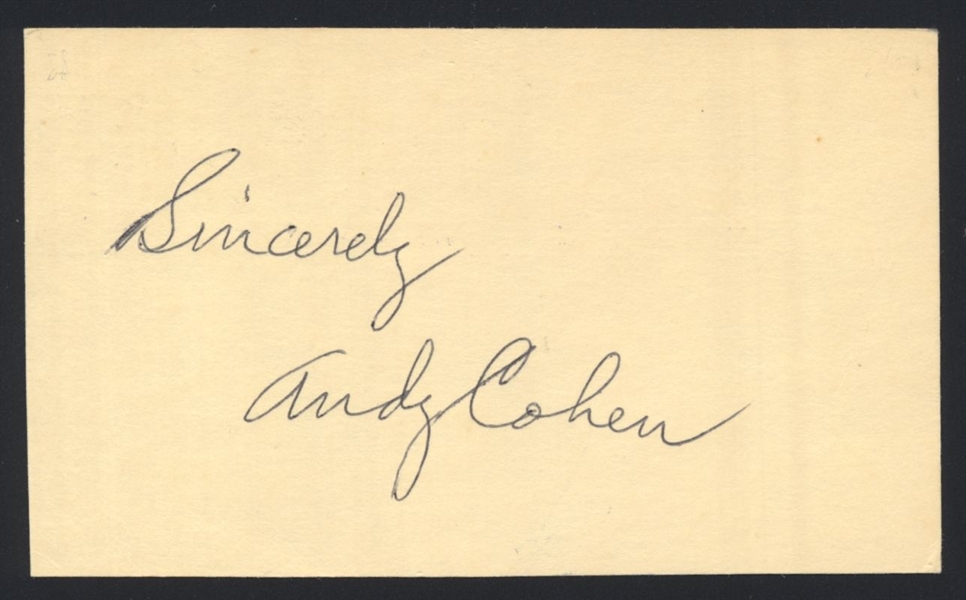 Sincerely
Andy Cohen